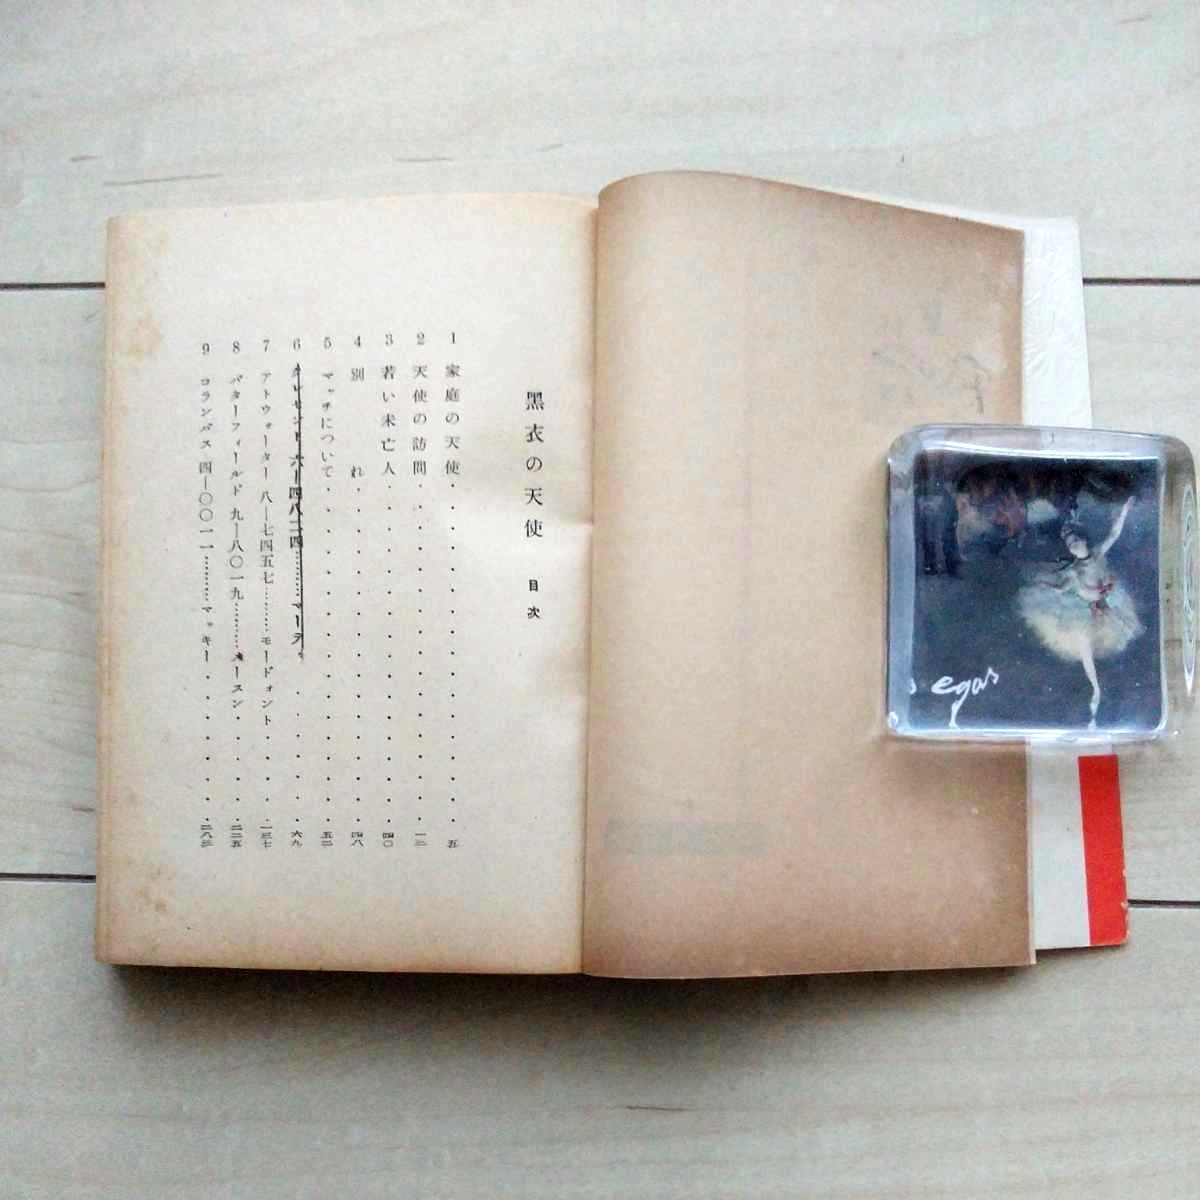 黑衣の天使 目次
1 家庭の天使・・・・・・・・・・・・・五
2 天使の訪問・・・・・・・・・・・・・一二
3 若い未亡人・・・・・・・・・・・・・四〇
4 別れ・・・・・・・・・・・・・四八
5 マッチについて・・・・・・・・・・・・・五二
6 クレセント 六―四八二四………マーテ・・・・・六九
7 アトウォーター 八―七四五七………モードォント・・・・一三七
8 バターフィールド 九―八〇一九………メースン・・・・・二二五
9 コランバス 四―〇〇一一………マッキー・・・・・・二八三
egas